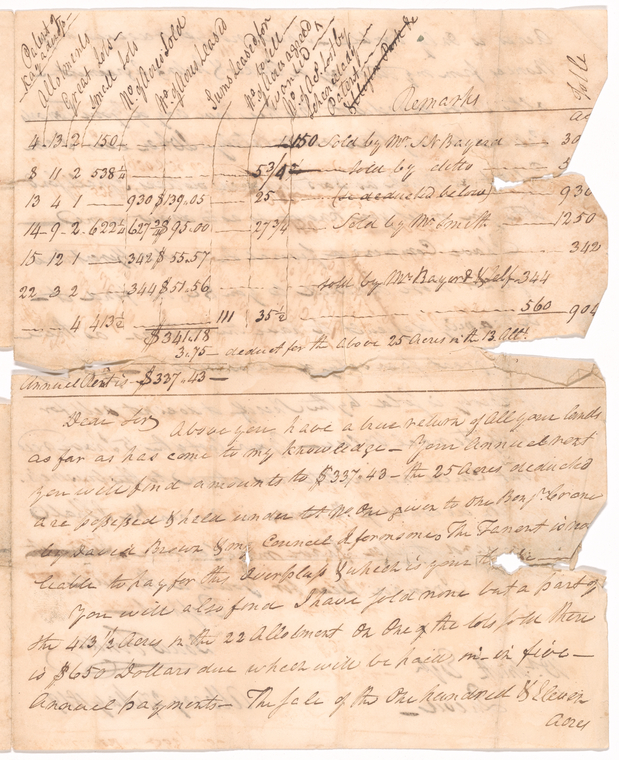 Allotments
Great Lots
Small lots
No. of Acres Sold
No. of Acres Leased
Sums Leased for
Remarks
4 13 2 150 150 Sold by Mr. S. N. Bayerd 30
8 11 2 538¼ 5¾ Sold by ditto 5
13 4 1 930 $139.05 25 (to deducted below) 930
14 9 2 622¼ 627¾ $95.00 27¾ Sold by Mr. Smith 1250
15 12 1 342 $55.57 342
22 3 2 344 $51.56 Sold by Mr. Bayerd & Self 344
4 413½ 111 35½ 560 904
$341.18
3.75 deduct for the above 25 Acres in th 13 Allt.
Annual Rent is $337.43
Dear Sir Above you have a true return of All your lands
as far as has come to my knowledge — Your Annual rent
you will find amounts to $337.43 the 25 Acres deducted
are possessed & held under No. One given to one
by David Brown & my Council informs me The Tenent is not
leable to pay for this Overpluss & which is your
You will also find I have sold none but a part of
the 413½ Acres in the 22 Allotment On One of the lots sold there
is $650 Dollars due which will be paid in in five
Annual payments — The sale of the One hundred & Eleven
Acres